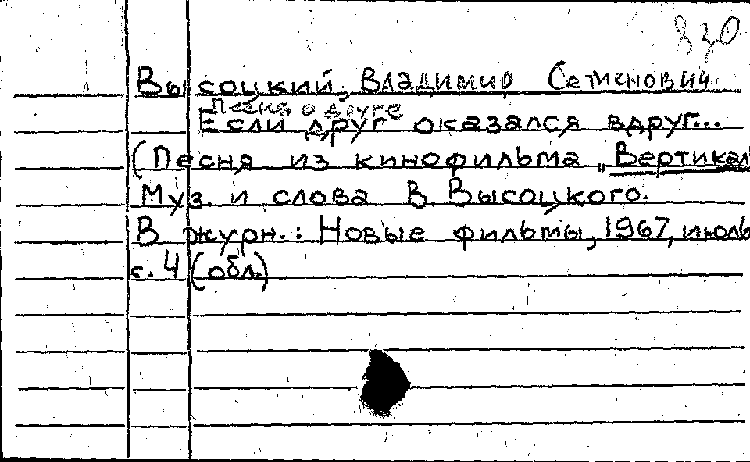 330
Высоцкий, Владимир Семенович
Песня о друге
Если друг оказался вдруг...
(Песня из кинофильма „Вертикал
Муз. и слова В. Высоцкого.
В журн.: Новые фильмы, 1967, июль
с. 4 (обл.)